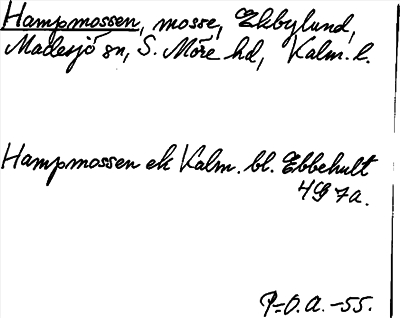 Hampmossen, mosse, Ekbylund,
Madesjö sn, S. Möre hd, Kalm. l.
Hampmossen ek Kalm. bl. Ebbehult
4G 7a.
P=O. A. -55.